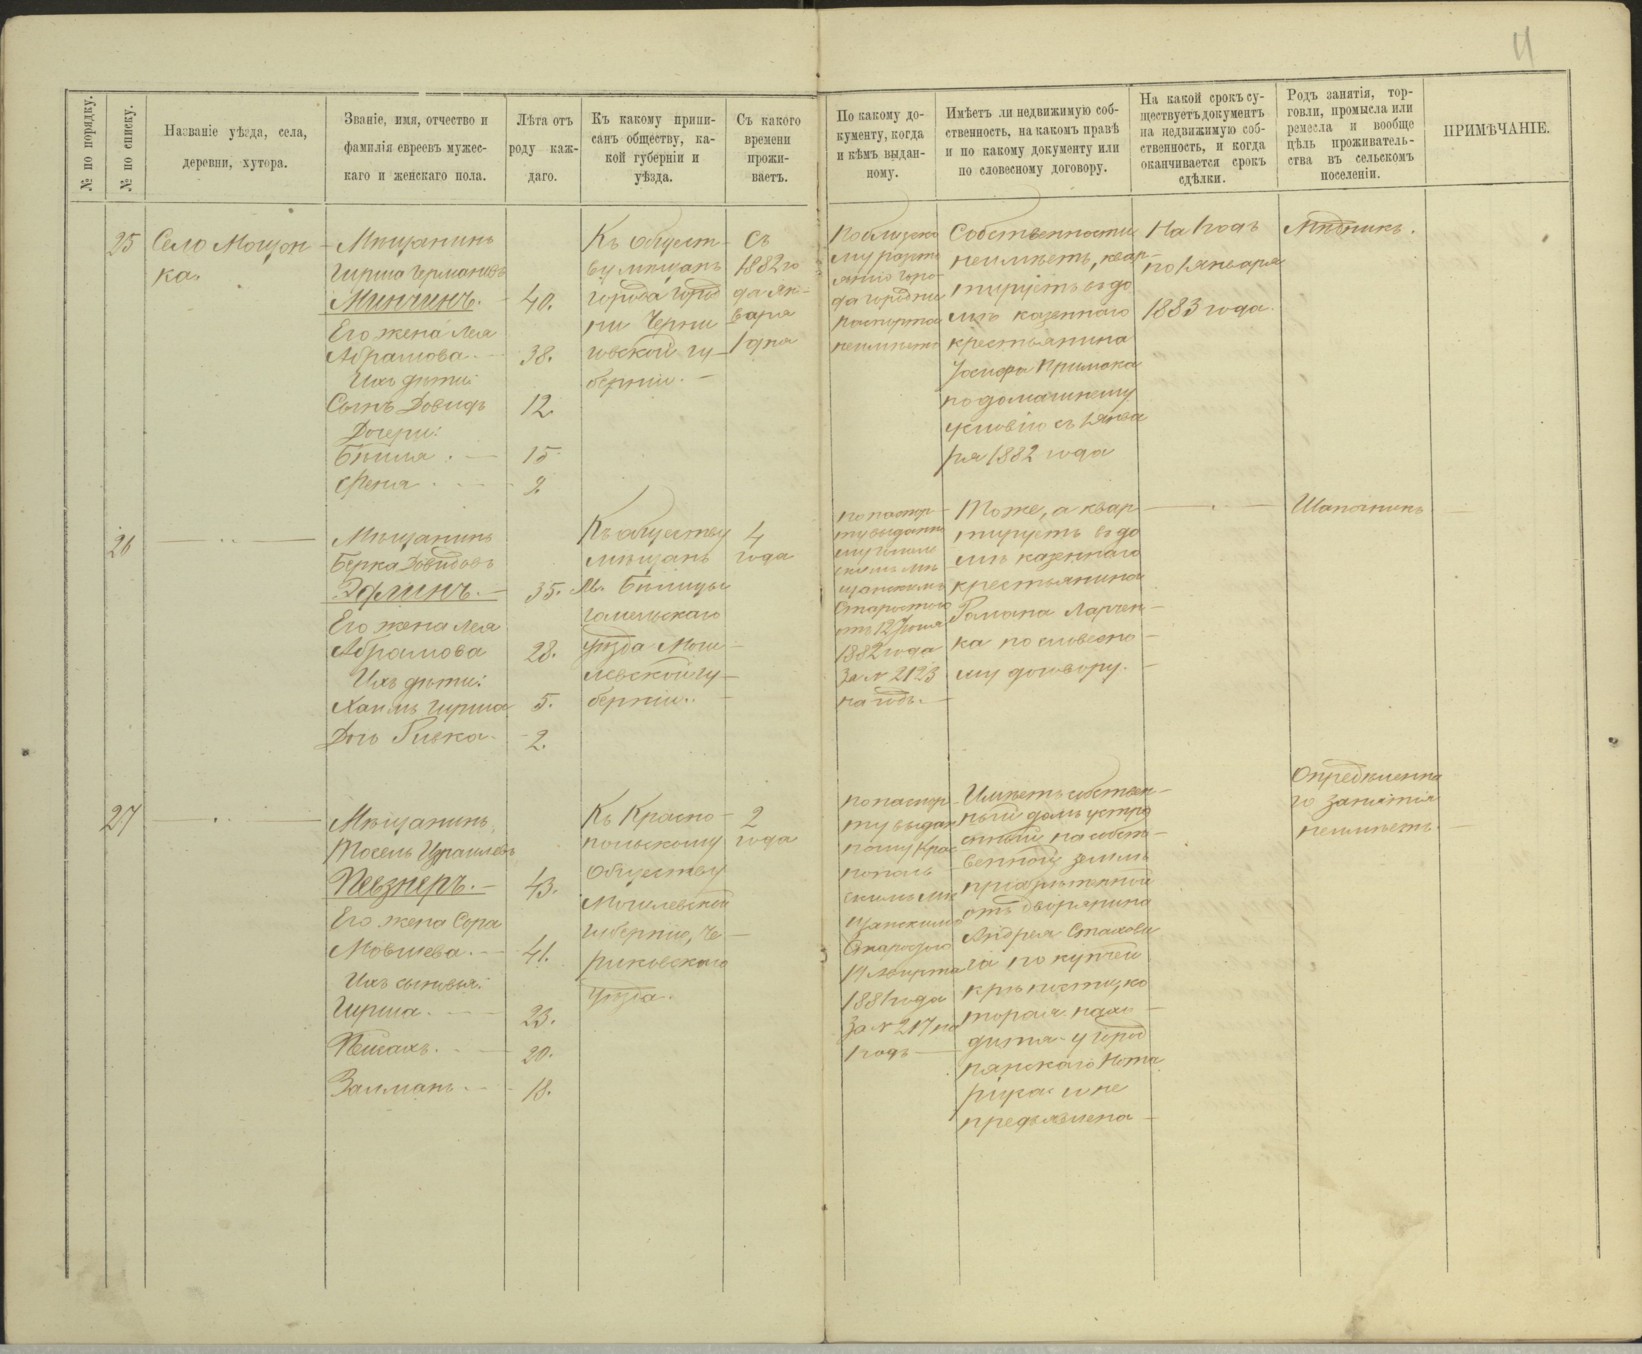 4
№ по порядку.
№ по списку.
Названіе уѣзда, села,
деревни, хутора.
Званіе, имя, отчество и
фамилія евреевъ мужес-
каго и женскаго пола.
Лѣта отъ
роду каж-
даго.
Къ какому припи-
санъ обществу, ка-
кой губерніи и
уѣзда.
Съ какого
времени
прожи-
ваетъ.
По какому до-
кументу, когда
и кѣмъ выдан-
ному.
Имѣетъ ли недвижимую соб-
ственность, на какомъ правѣ
и по какому документу или
по словесному договору.
На какой срокъ су-
ществуетъ документъ
на недвижимую соб-
ственность, и когда
оканчивается срокъ
сдѣлки.
Родъ занятія, тор-
говли, промысла или
ремесла и вообще
цѣль проживатель-
ства въ сельскомъ
поселеніи.
ПРИМѢЧАНІЕ.
25
Село Мощон
ка.
Мѣщанинъ
Гирша Германовъ
Минчинъ. - 40.
Его жена Лея
Абрамова. - 38.
Ихъ дѣти:
Сынъ Довидъ 12.
Дочери:
Бейля. - 15
Фрейля. - 9.
Къ общест-
ву мѣщанъ
города Город
ни Черни
говской гу-
берніи. -
Съ
1882 го
да Ян-
варя
1 дня
По близко
му разсто
янію горо-
да Городни
паспорта
неимѣетъ
Собственности
неимѣетъ, квар-
тируетъ въ до
мѣ казеннаго
крестьянина
Іосифа Примака
по домашнему
условію съ 1 Янва
ря 1882 года
На 1 годъ
по 1 января
1883 года.
Мѣдникъ.
26
Мѣщанинъ
Берка Довидовъ
Эдлинъ. - 35.
Его жена Лея
Абрамова 28.
Ихъ дѣти:
Хаимъ Гирша 5.
Дочь Ривка. - 2.
Къ обществу
мѣщанъ
М. Бѣлицы
Гомельскаго
уѣзда Моги-
левской гу-
берніи. -
4
года
по паспор-
ту выданно
му Гомель
скимъ мѣ
щанскимъ
Старостою
отъ 12 Іюля
1882 года
за № 2123
на годъ. -
Тоже, а квар
тируетъ въ до
мѣ казеннаго
крестьянина
Романа Ларчен-
ка по словесно-
му договору. -
Шапошникъ
27
Мѣщанинъ,
Тосель Израилевъ
Певзнеръ. - 43.
Его жена Сора
Мовшева. - 41.
Ихъ сыновья:
Гирша. - 23.
Пейсахъ. - 20.
Залманъ. - 18.
Къ Красно-
польскому
обществу
Могилевской
губерніи, Че-
риковскаго
уѣзда.
2
года
по паспор
ту выдан
ному Крас
нополь
скимъ мѣ
щанскимъ
Старостою
1881 года
за № 217 на
1 годъ
Имѣетъ собствен-
ный домъ устро
енный на собст-
венной землѣ
пріобрѣтенной
отъ дворянина
Андрея Стахови
ча по купчей
крѣпости, ко
торая нахо-
дится у Город
нянскаго Нота
ріуса и не
предъявлена
Опредѣленна
го занятія
неимѣетъ.